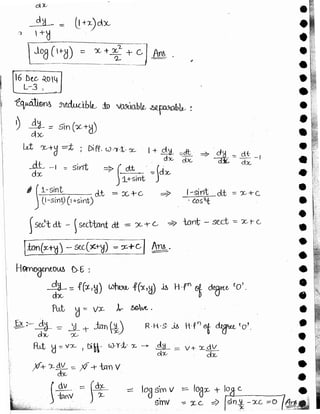 dx
dy/1+y = (1+x)dx
log(1+y) = x + x²/2 + c Ans.
16 Dec 2014
L-3.
Equations reducible to variable separable :
1) dy/dx = sin(x+y)
Let x+y = t ; Diff. w.r.t. x 1 + dy/dx = dt/dx ⇒ dy/dx = dt/dx - 1
dt/dx - 1 = sint ⇒ ∫ dt/1+sint = ∫dx
∫ 1-sint/(1-sint)(1+sint) dt = x+c ⇒ ∫ 1-sint/cos²t dt = x+c
∫sec²t dt - ∫sect tant dt = x+c ⇒ tant - sect = x+c
tan(x+y) - sec(x+y) = x+c Ans.
Homogeneous D.E :
dy/dx = f(x,y) where f(x,y) is H.fⁿ of degree '0'.
Put y = vx & solve.
Ex:- dy/dx = y/x + tan(y/x) R.H.S is H.fⁿ of degree '0'.
Put y = vx , Diff. w.r.t x → dy/dx = v + x dv/dx
v + x dv/dx = v + tan v
∫ dv/tanv = ∫ dx/x = log sin v = logx + log c
sinv = xc ⇒ sin y/x - xc = 0 Ans